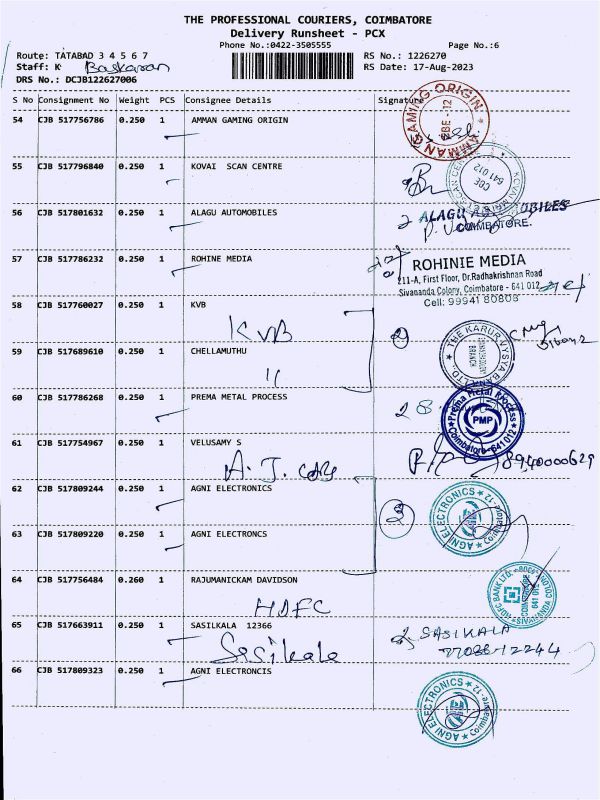 THE PROFESSIONAL COURIERS, COIMBATORE
Delivery Runsheet - PCX
Phone No.:0422-3505555 Page No.:6
Route: TATABAD 3 4 5 6 7 RS No.: 1226270
Staff: K Baskaran RS Date: 17-Aug-2023
DRS No.: DCJB122627006
S No Consignment No Weight PCS Consignee Details Signature
54 CJB 517756786 0.250 1 AMMAN GAMING ORIGIN
AMMAN GAMING ORIGIN CBE-12
55 CJB 517796840 0.250 1 KOVAI SCAN CENTRE
KOVAI SCAN CENTRE CBE 641 012
56 CJB 517801632 0.250 1 ALAGU AUTOMOBILES
ALAGU AUTOMOBILES
COIMBATORE.
57 CJB 517786232 0.250 1 ROHINE MEDIA
ROHINIE MEDIA
211-A, First Floor, Dr.Radhakrishnan Road
Sivananda Colony, Coimbatore - 641 012
Cell: 99941 80808
58 CJB 517760027 0.250 1 KVB
KVB
THE KARUR VYSYA BANK LTD. BRANCH
59 CJB 517689610 0.250 1 CHELLAMUTHU
"
60 CJB 517786268 0.250 1 PREMA METAL PROCESS
28
Prema Metal Process PMP Coimbatore-641 012
61 CJB 517754967 0.250 1 VELUSAMY S
8940000629
62 CJB 517809244 0.250 1 AGNI ELECTRONICS
AGNI ELECTRONICS Coimbatore-12
63 CJB 517809220 0.250 1 AGNI ELECTRONCS
64 CJB 517756484 0.260 1 RAJUMANICKAM DAVIDSON
HDFC
HDFC BANK LTD. SIVANANDA COLONY COIMBATORE 641 012
65 CJB 517663911 0.250 1 SASILKALA 12366
Sasikala SASIKALA
66 CJB 517809323 0.250 1 AGNI ELECTRONCIS
AGNI ELECTRONICS Coimbatore-12